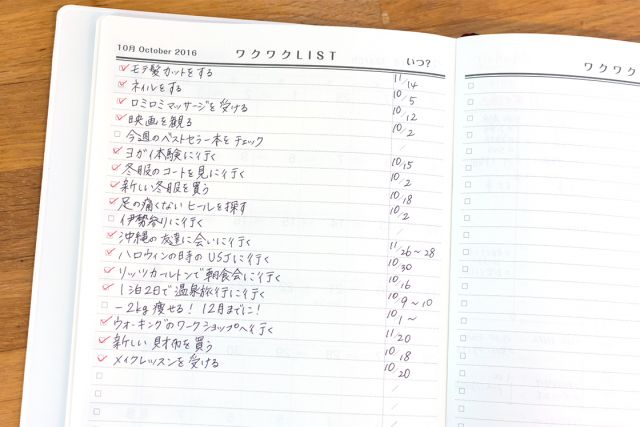 10月 October 2016 ワクワクLIST いつ?
モテ髪カットをする 11/14
ネイルをする 10/5
ロミロミマッサージを受ける 10/12
映画を観る 10/2
今週のベストセラー本をチェック /
ヨガ体験に行く 10/15
冬服のコートを見に行く 10/2
新しい冬服を買う 10/18
足の痛くないヒールを探す 10/2
伊勢参りに行く /
沖縄の友達に会いに行く 11/26〜28
ハロウィンの日のUSJに行く 10/30
リッツカールトンで朝食会に行く 10/16
1泊2日で温泉旅行に行く 10/9〜10
-2kg痩せる!12月までに! 10/1〜
ウォーキングのワークショップへ行く 11/20
新しい財布を買う 10/18
メイクレッスンを受ける 10/20
ワクワク